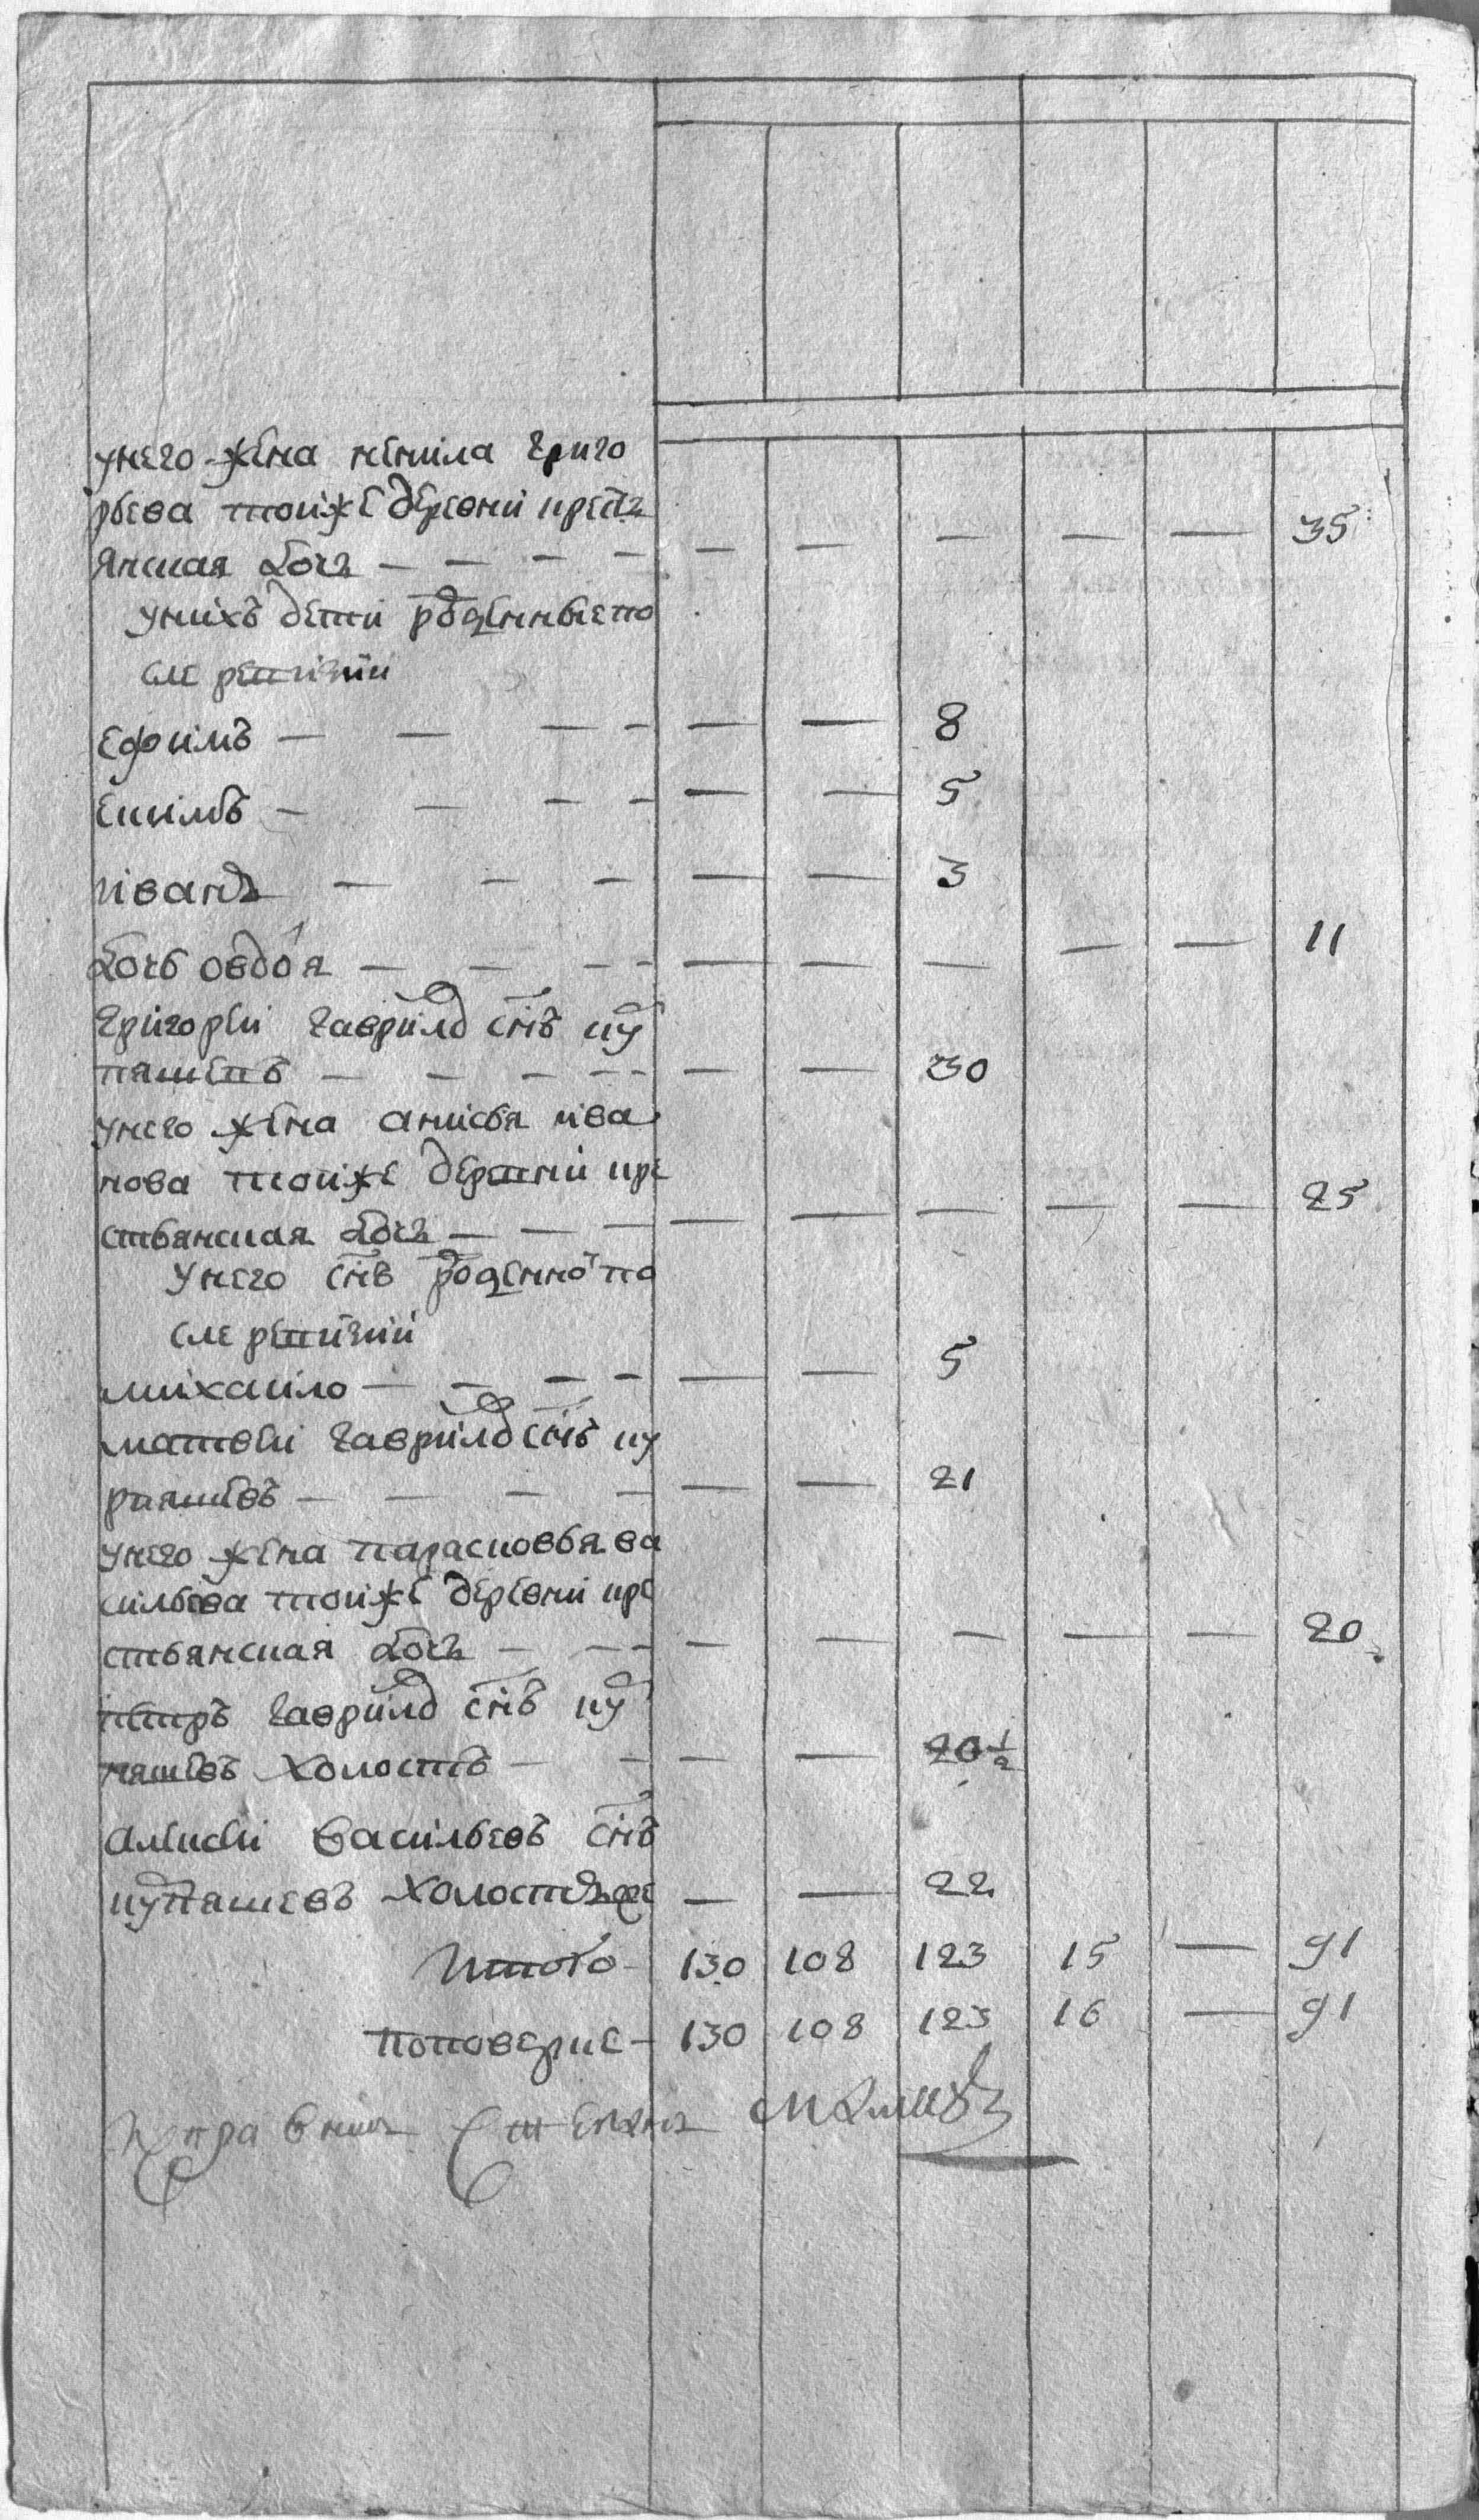 унего жена ненила григо
рьева тойже деревни крестъ
янская дочь — — — — — — — — — 35
униxъ дети рожденные по
сле ревизии
ефимъ — — — — — — 8
екимъ — — — — — — 5
иванъ — — — — — 3
дочь овдотя — — — — — — — — — 11
григореи гаврилов снъ ку
няшевъ — — — — — — — 30
унего жена анисья ива
нова тойже деревни кре
стьянская дочь — — — — — — — — 25
унего снъ рожденной по
сле ревизии
михаило — — — — — — 5
матвеи гаврилов снъ ку
няшевъ — — — — — — 21
унего жена парасковья ва
сильева тойже деревни кре
стьянская дочь — — — — — — — — 20
петръ гаврилов снъ ку
няшевъ холостъ — — — — 20 1/2
алексеи васильевъ снъ
холостъ же — — 22
Итого — 130 108 123 15 — 91
поповерке — 130 108 123 16 — 91